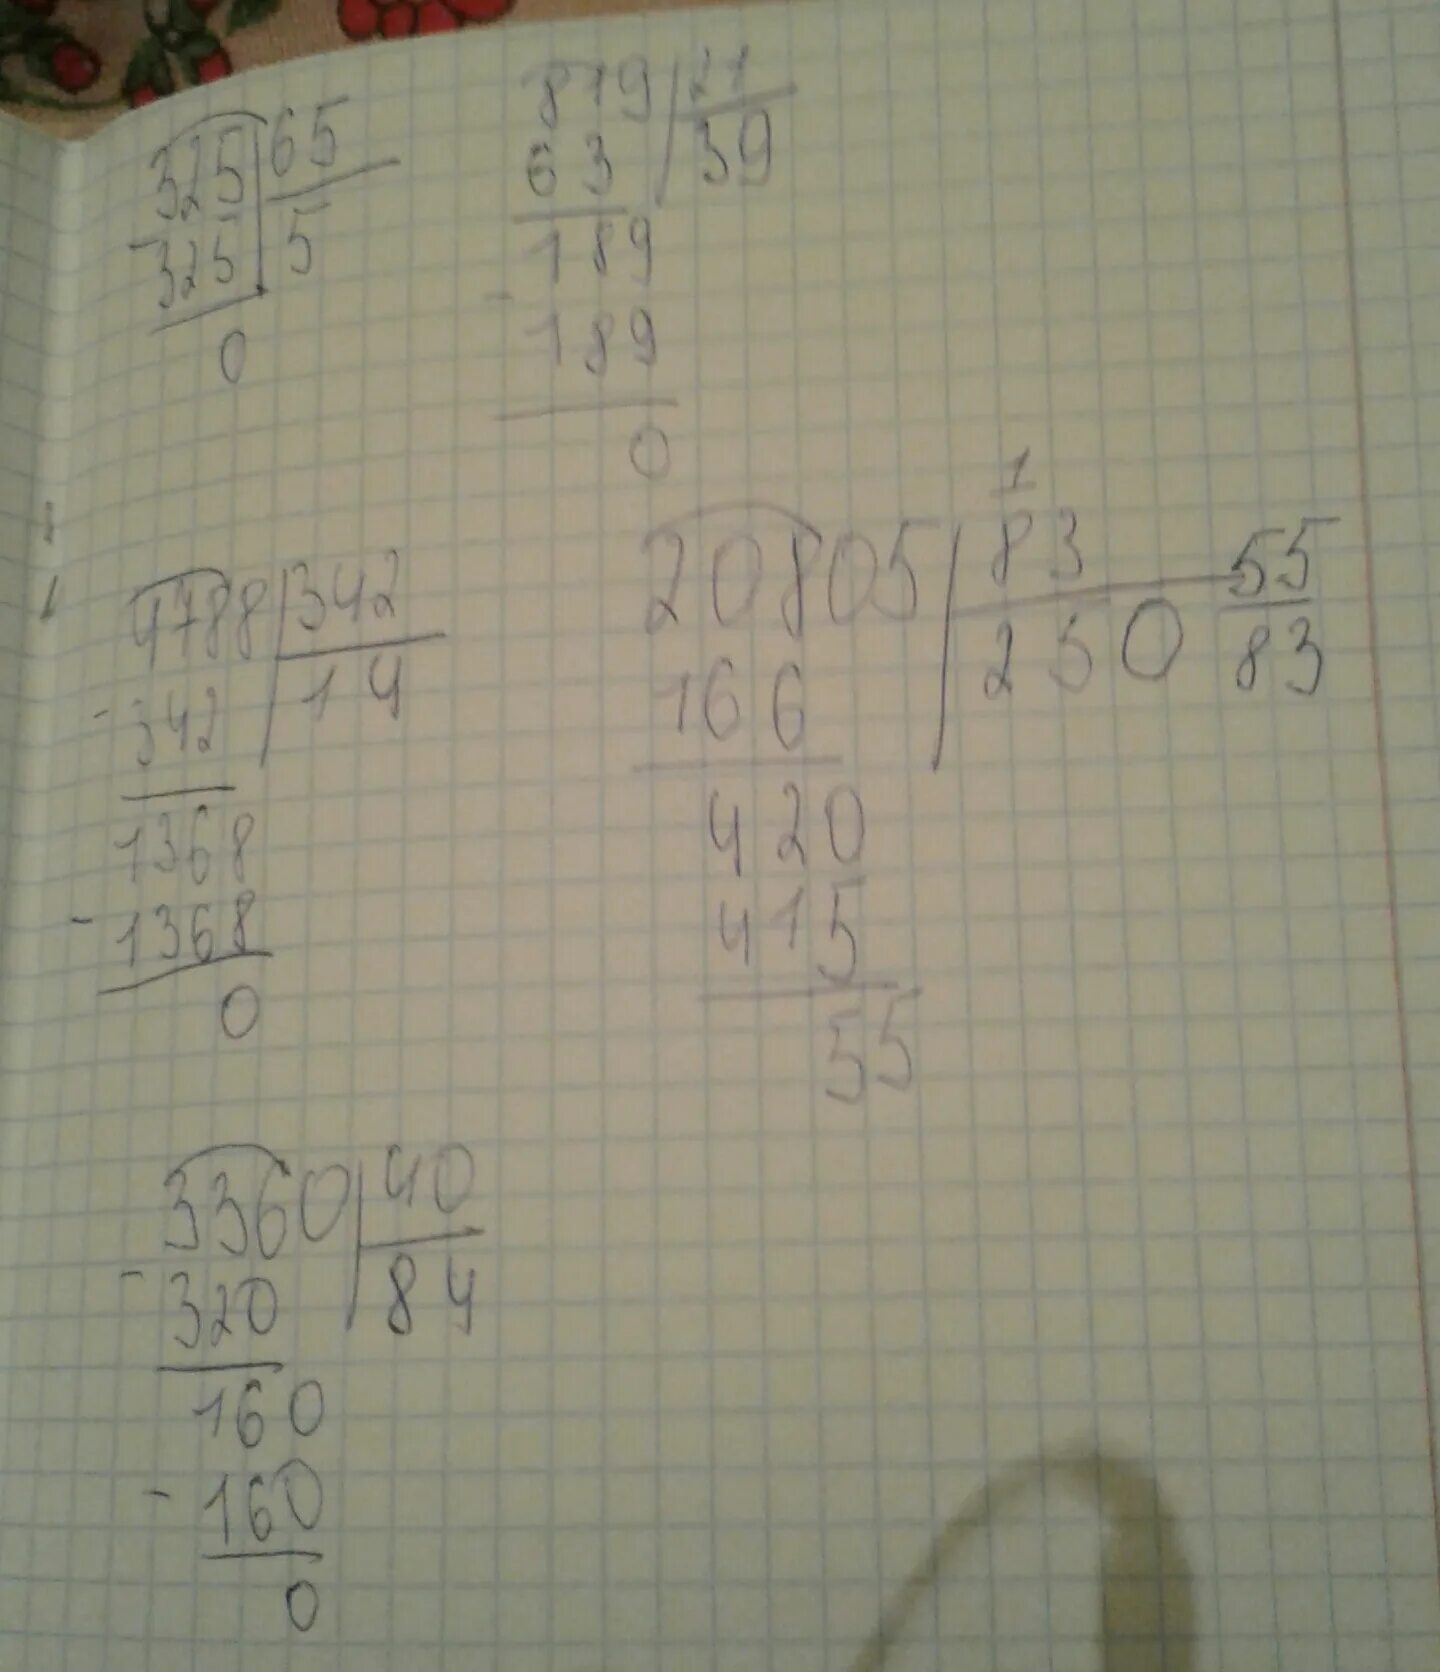 325 65
- 325 5
0
819 21
63 39
189
- 189
0
4788 342
- 342 14
1368
- 1368
0
1
20805 83 55
166 250 83
420
415
55
3360 40
- 320 84
160
- 160
0